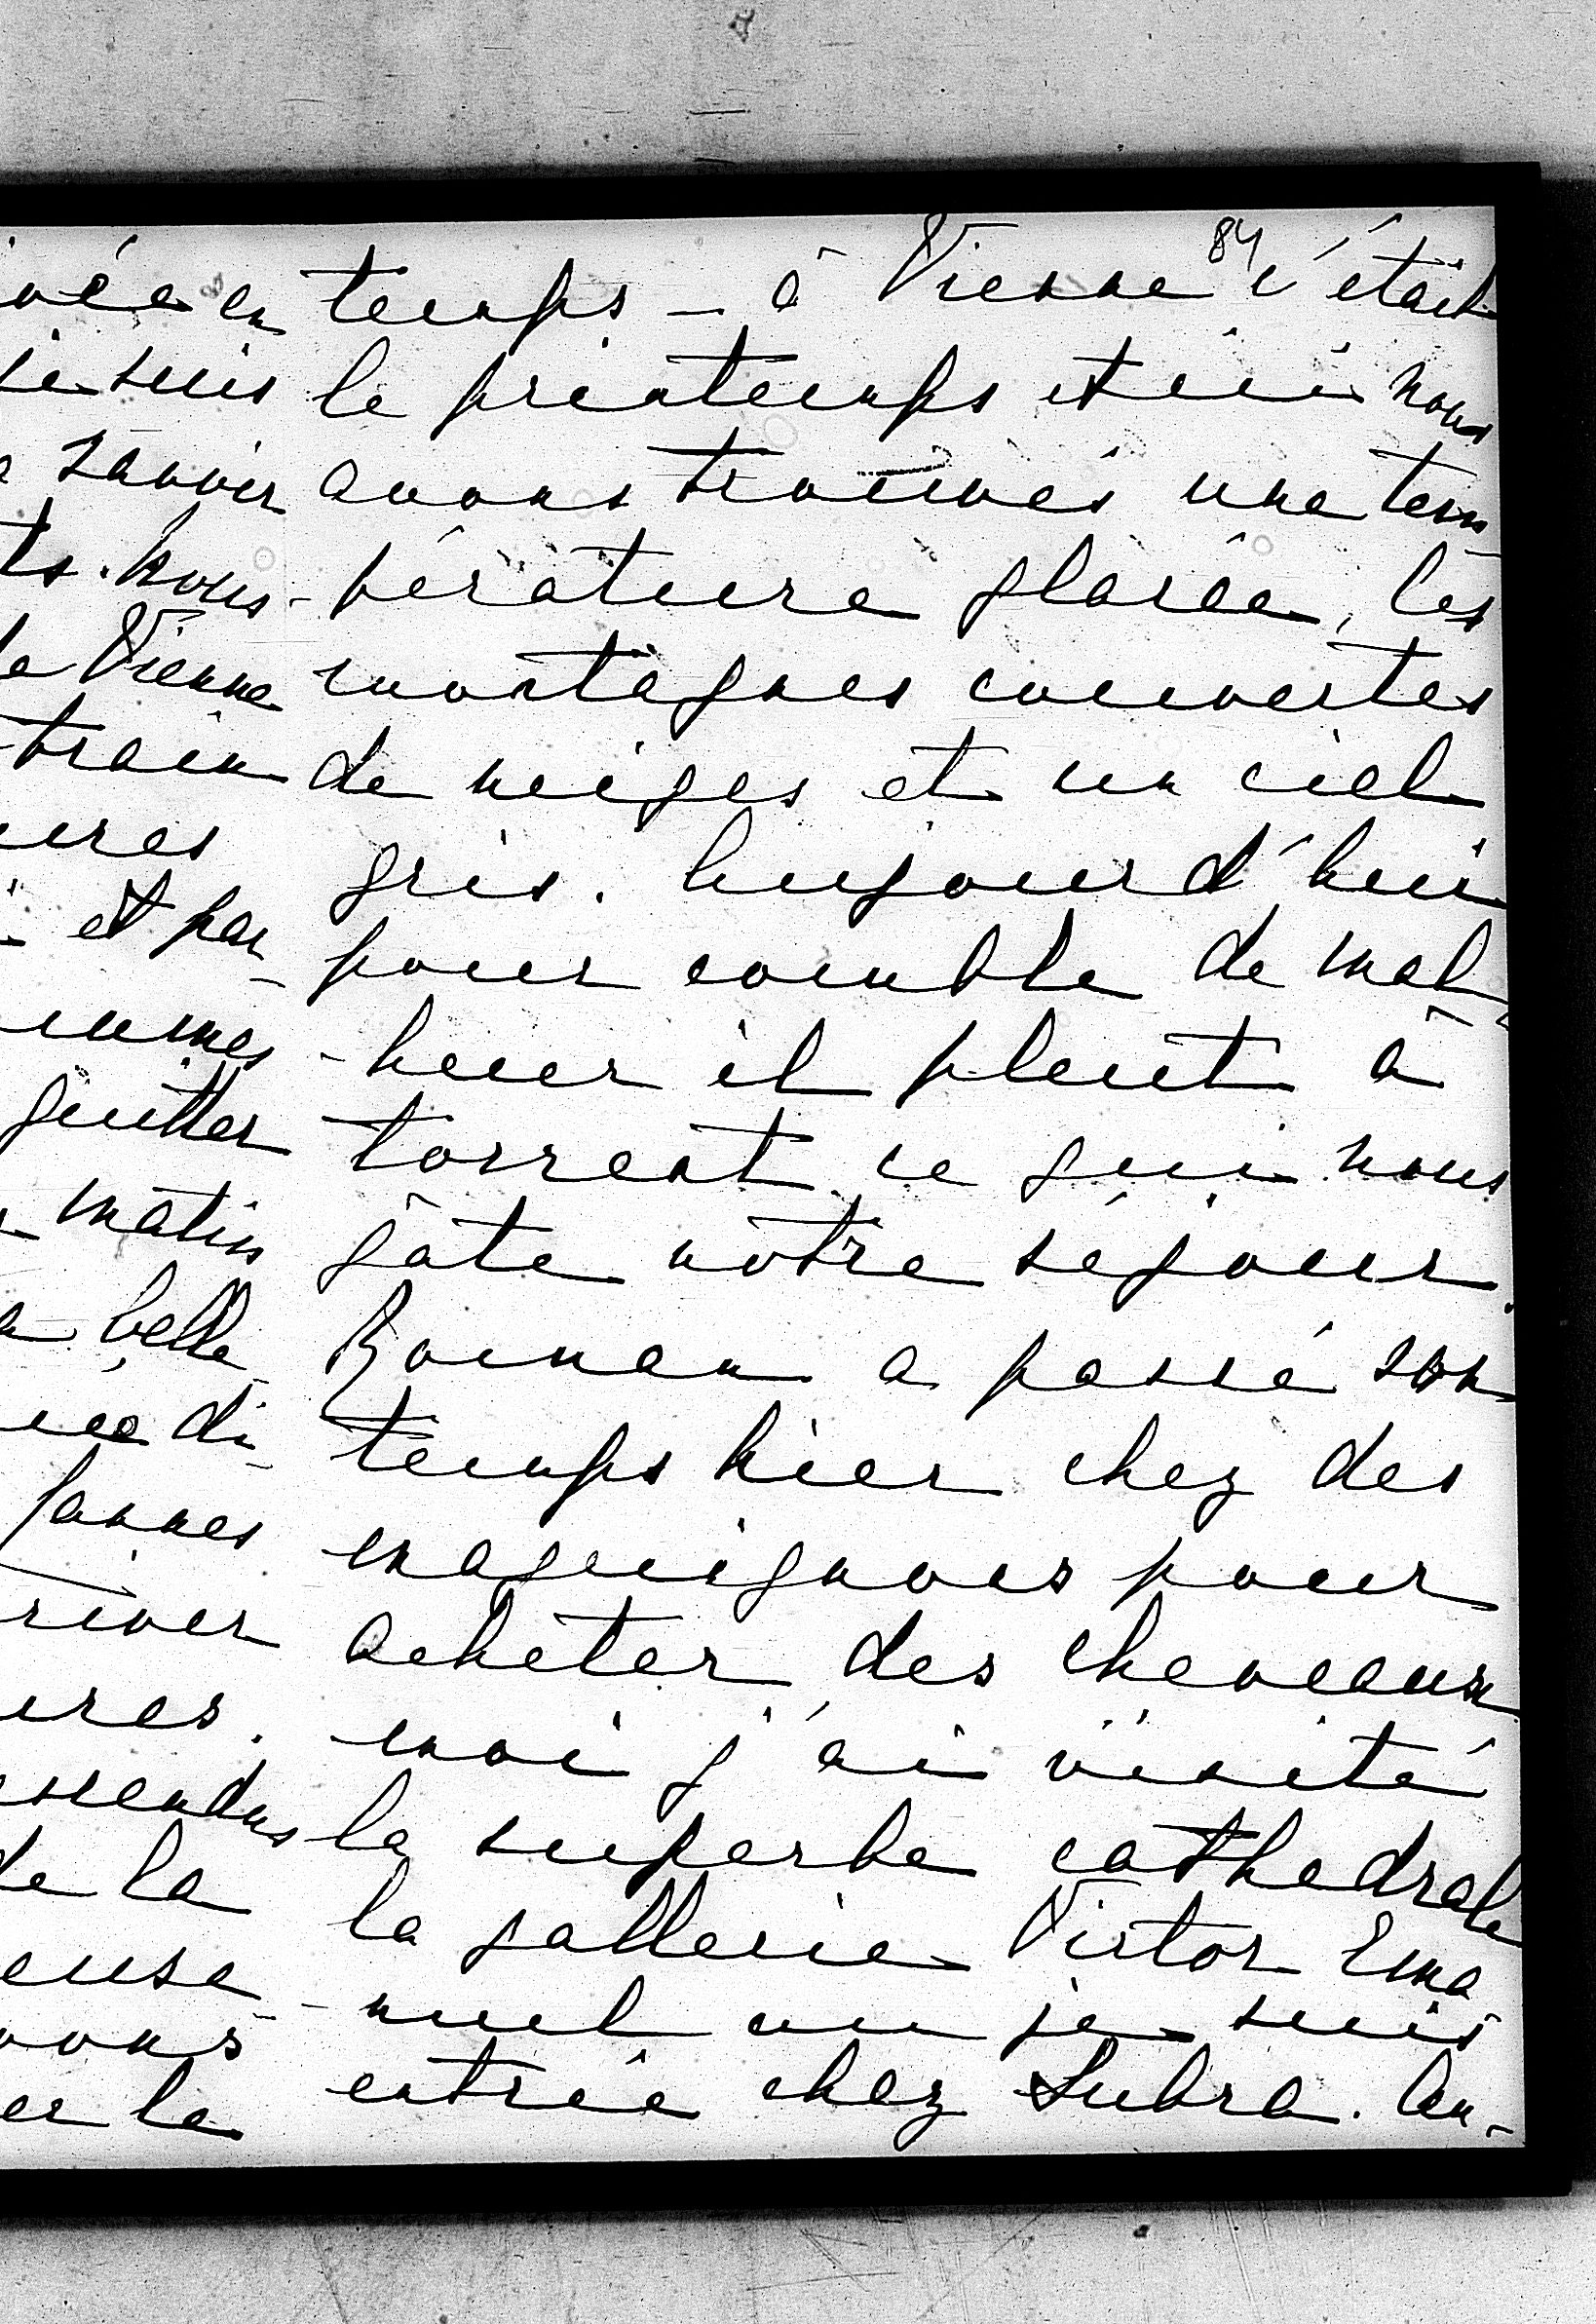 en
je suis
savoir
ts. nous
de Vienne
train
ures
et par-
mmes
quitter
matin
belle
di-
Cannes
river
ures.
escendus
de la
euse
vons
er la
84
temps - à Vienne c'était
le printemps et ici nous
avons trouvés une tem
-pérature glacée, les
montagnes couvertes
de neiges et un ciel
gris. Aujourd'hui
pour comble de mal-
-heur il pleut à
torrent ce qui nous
gâte nôtre séjour.
Roman a passé son
temps hier chez des
maquignons pour
acheter des cheveaux
moi j'ai visité
la superbe cathedrale
la gallerie Victor Ema
-nuel ou je suis
entrée chez Subra. Au-